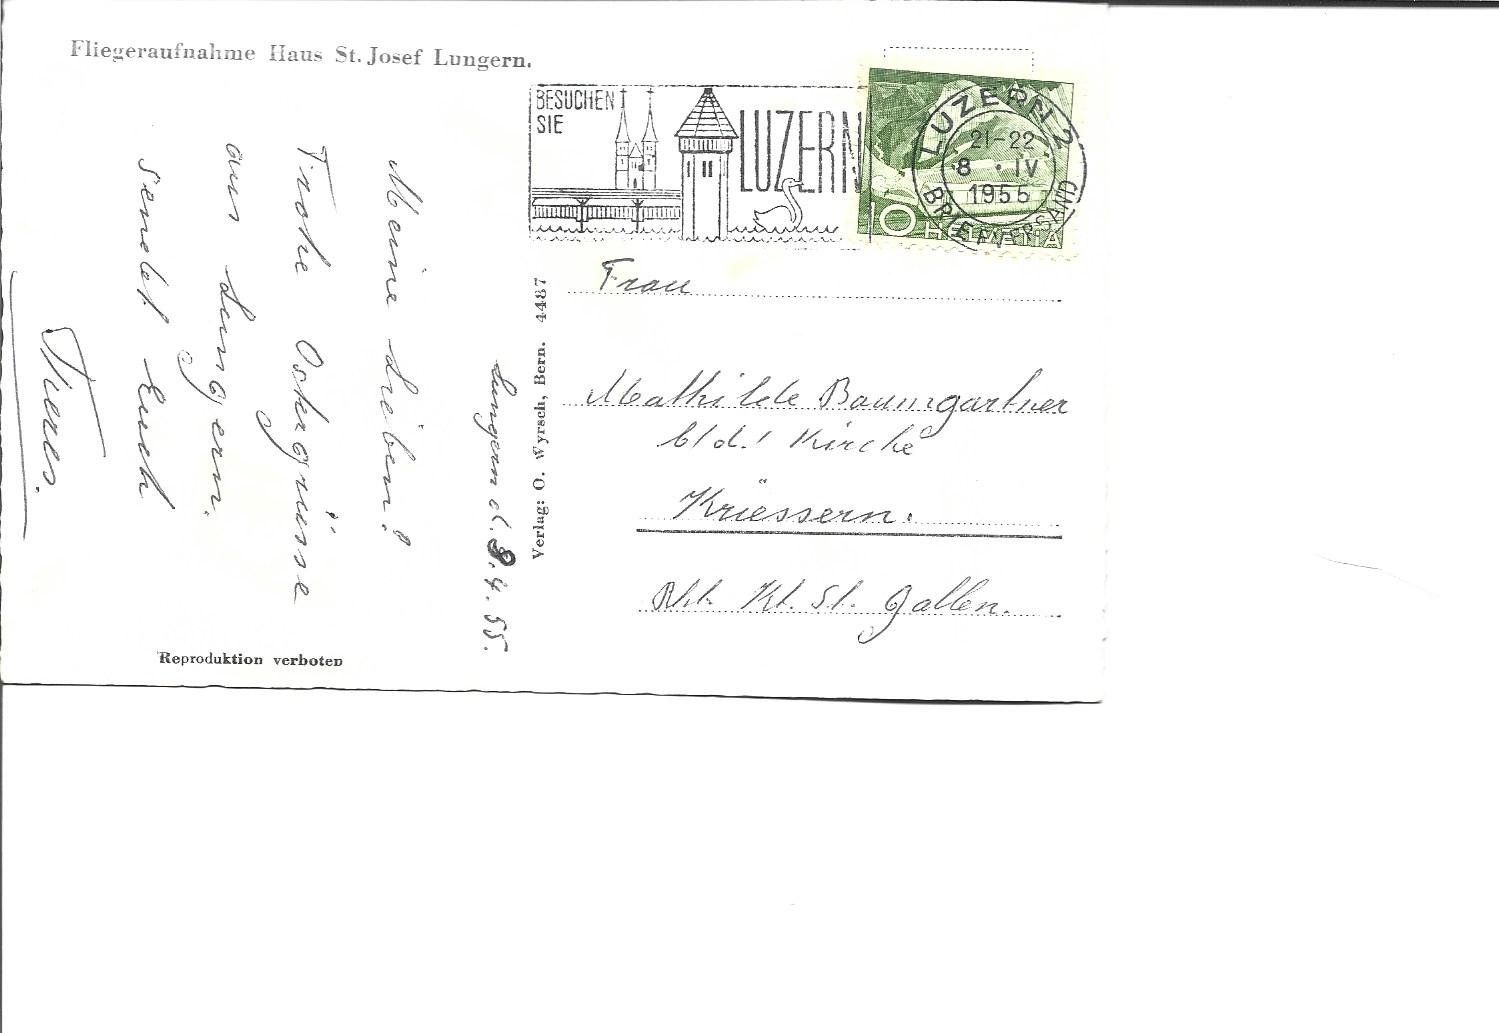 Fliegeraufnahme Haus St. Josef Lungern.
BESUCHEN
SIE
LUZERN
LUZERN 2
21-22
8 · IV
1955
BRIEFVERSAND
10 HELVETIA
Lungern d. 8.4.55.
Meine Lieben!
Frohe Ostergrüsse
aus Lungern.
sendet Euch
Verlag: O. Wyrsch, Bern. 4487
Frau
Mathilde Baumgartner
b/d. Kirche
Kriessern.
Rht. Kt. St. Gallen.
Reproduktion verboten